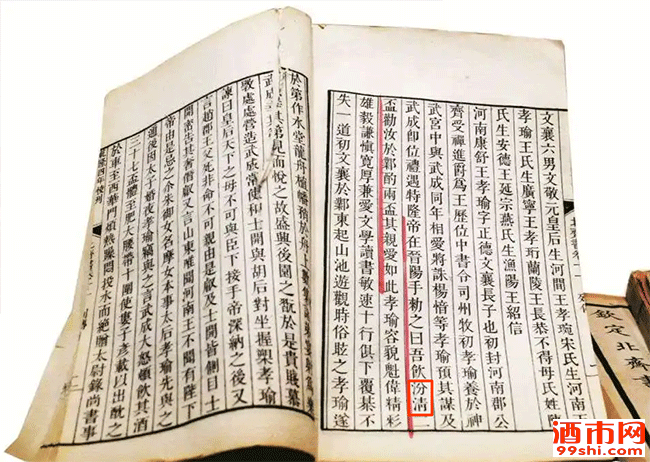 北齊書卷十一
文襄六男文敬元皇后生河間王孝琬宋氏生河南王
孝瑜王氏生廣寧王孝珩蘭陵王長恭不得母氏姓陳
氏生安德王延宗燕氏生漁陽王紹信
河南康舒王孝瑜字正德文襄長子也初封河南郡公
齊受禪進爵爲王歷位中書令司州牧初孝瑜養於神
武宮中與武成同年相愛將誅楊愔等孝瑜預其謀及
武成即位禮遇特隆帝在晉陽手勑之曰吾飲汾清二
盃勸汝於鄴酌兩盃其親愛如此孝瑜容貌魁偉精彩
雄毅謙愼寬厚兼愛文學讀書敏速十行俱下覆棊不
失一道初文襄於鄴東起山池遊觀時俗眩之孝瑜遂
於第作水堂龍舟植幡矟於舟上數集諸弟宴射爲樂
武成幸其第見而悅之故盛興後園之翫於是貴賤慕
敩處處營造武成常使和士開與胡后對坐握槊孝瑜
諫曰皇后天下之母不可與臣下接手帝深納之後又
言趙郡王父死非命不可親由是叡及士開皆側目士
開密告其奢僭叡又言山東唯聞河南王不聞有陛下
帝由是忌之尒朱御女名摩女本事太后孝瑜先與之
通後因太子婚夜孝瑜竊與之言武成大怒頓飲其酒
三十七盃體至肥大腰帶十圍使婁子彥載以出酖之
於車至西華門煩熱躁悶投水而絕贈太尉錄尚書事
欽定北齊書
酒市网
99shi.com